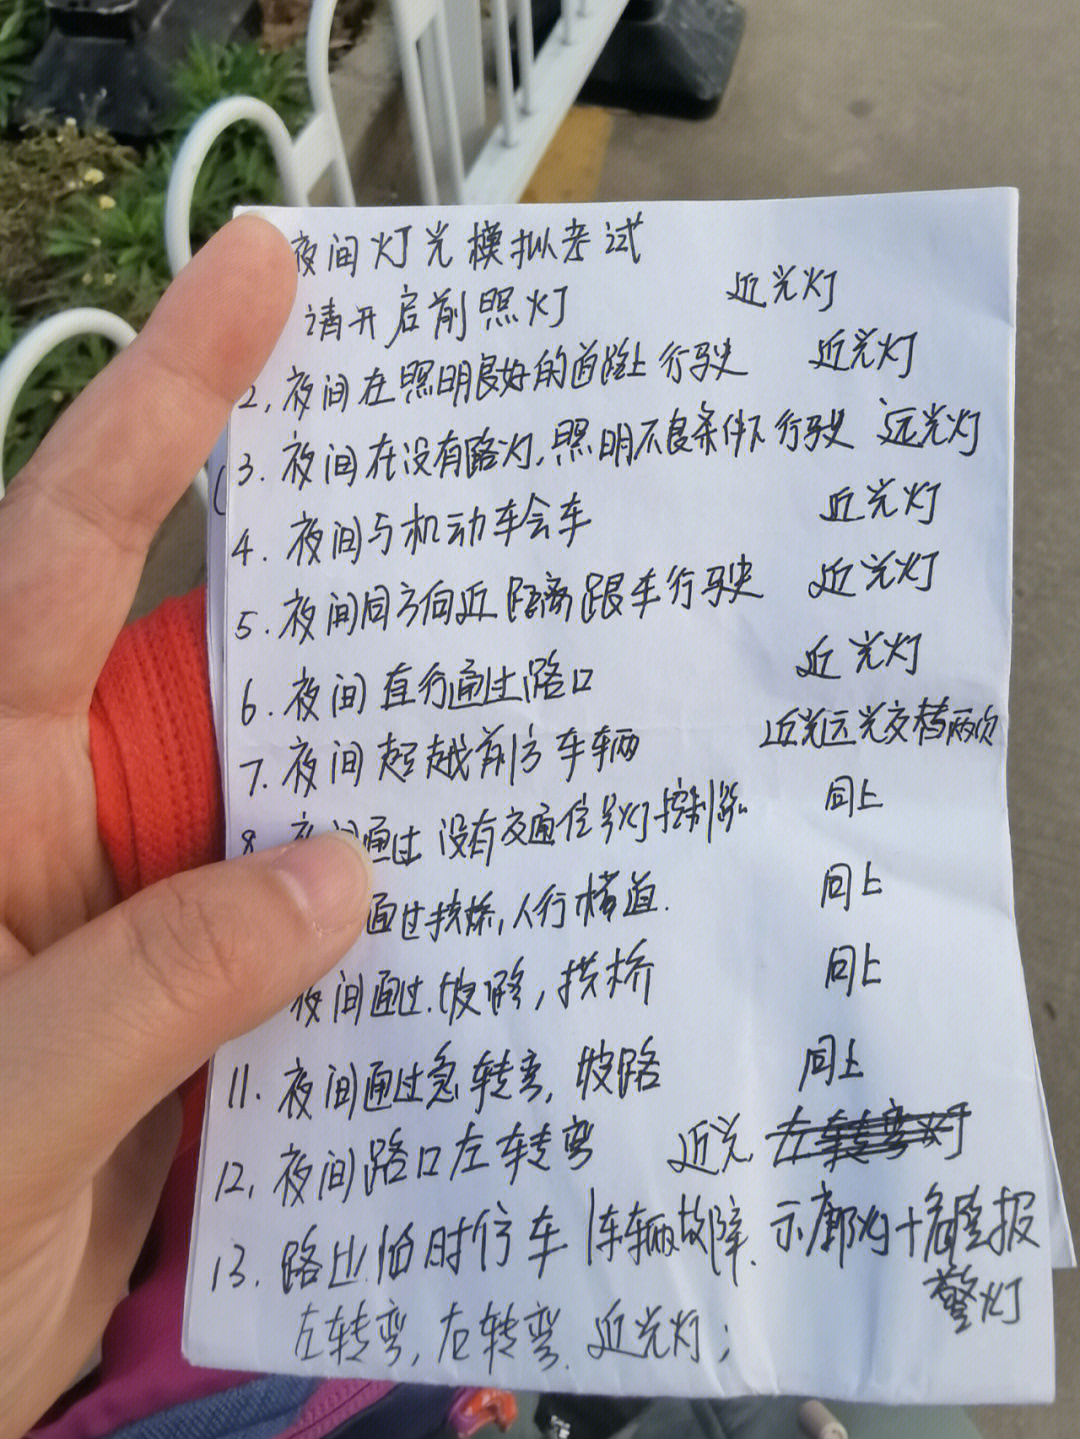 夜间灯光模拟考试
请开启前照灯 近光灯
2. 夜间在照明良好的道路上行驶 近光灯
3. 夜间在没有路灯,照明不良条件下行驶 远光灯
4. 夜间与机动车会车 近光灯
5. 夜间同方向近距离跟车行驶 近光灯
6. 夜间直行通过路口 近光灯
7. 夜间超越前方车辆 近光远光交替两次
8 夜间通过没有交通信号灯控制路 同上
通过拱桥,人行横道. 同上
夜间通过.坡路,拱桥 同上
11. 夜间通过急转弯,坡路 同上
12. 夜间路口左转弯 近光
13. 路边临时停车 车辆故障. 示廓灯+危险报
警灯
左转弯,右转弯. 近光灯;